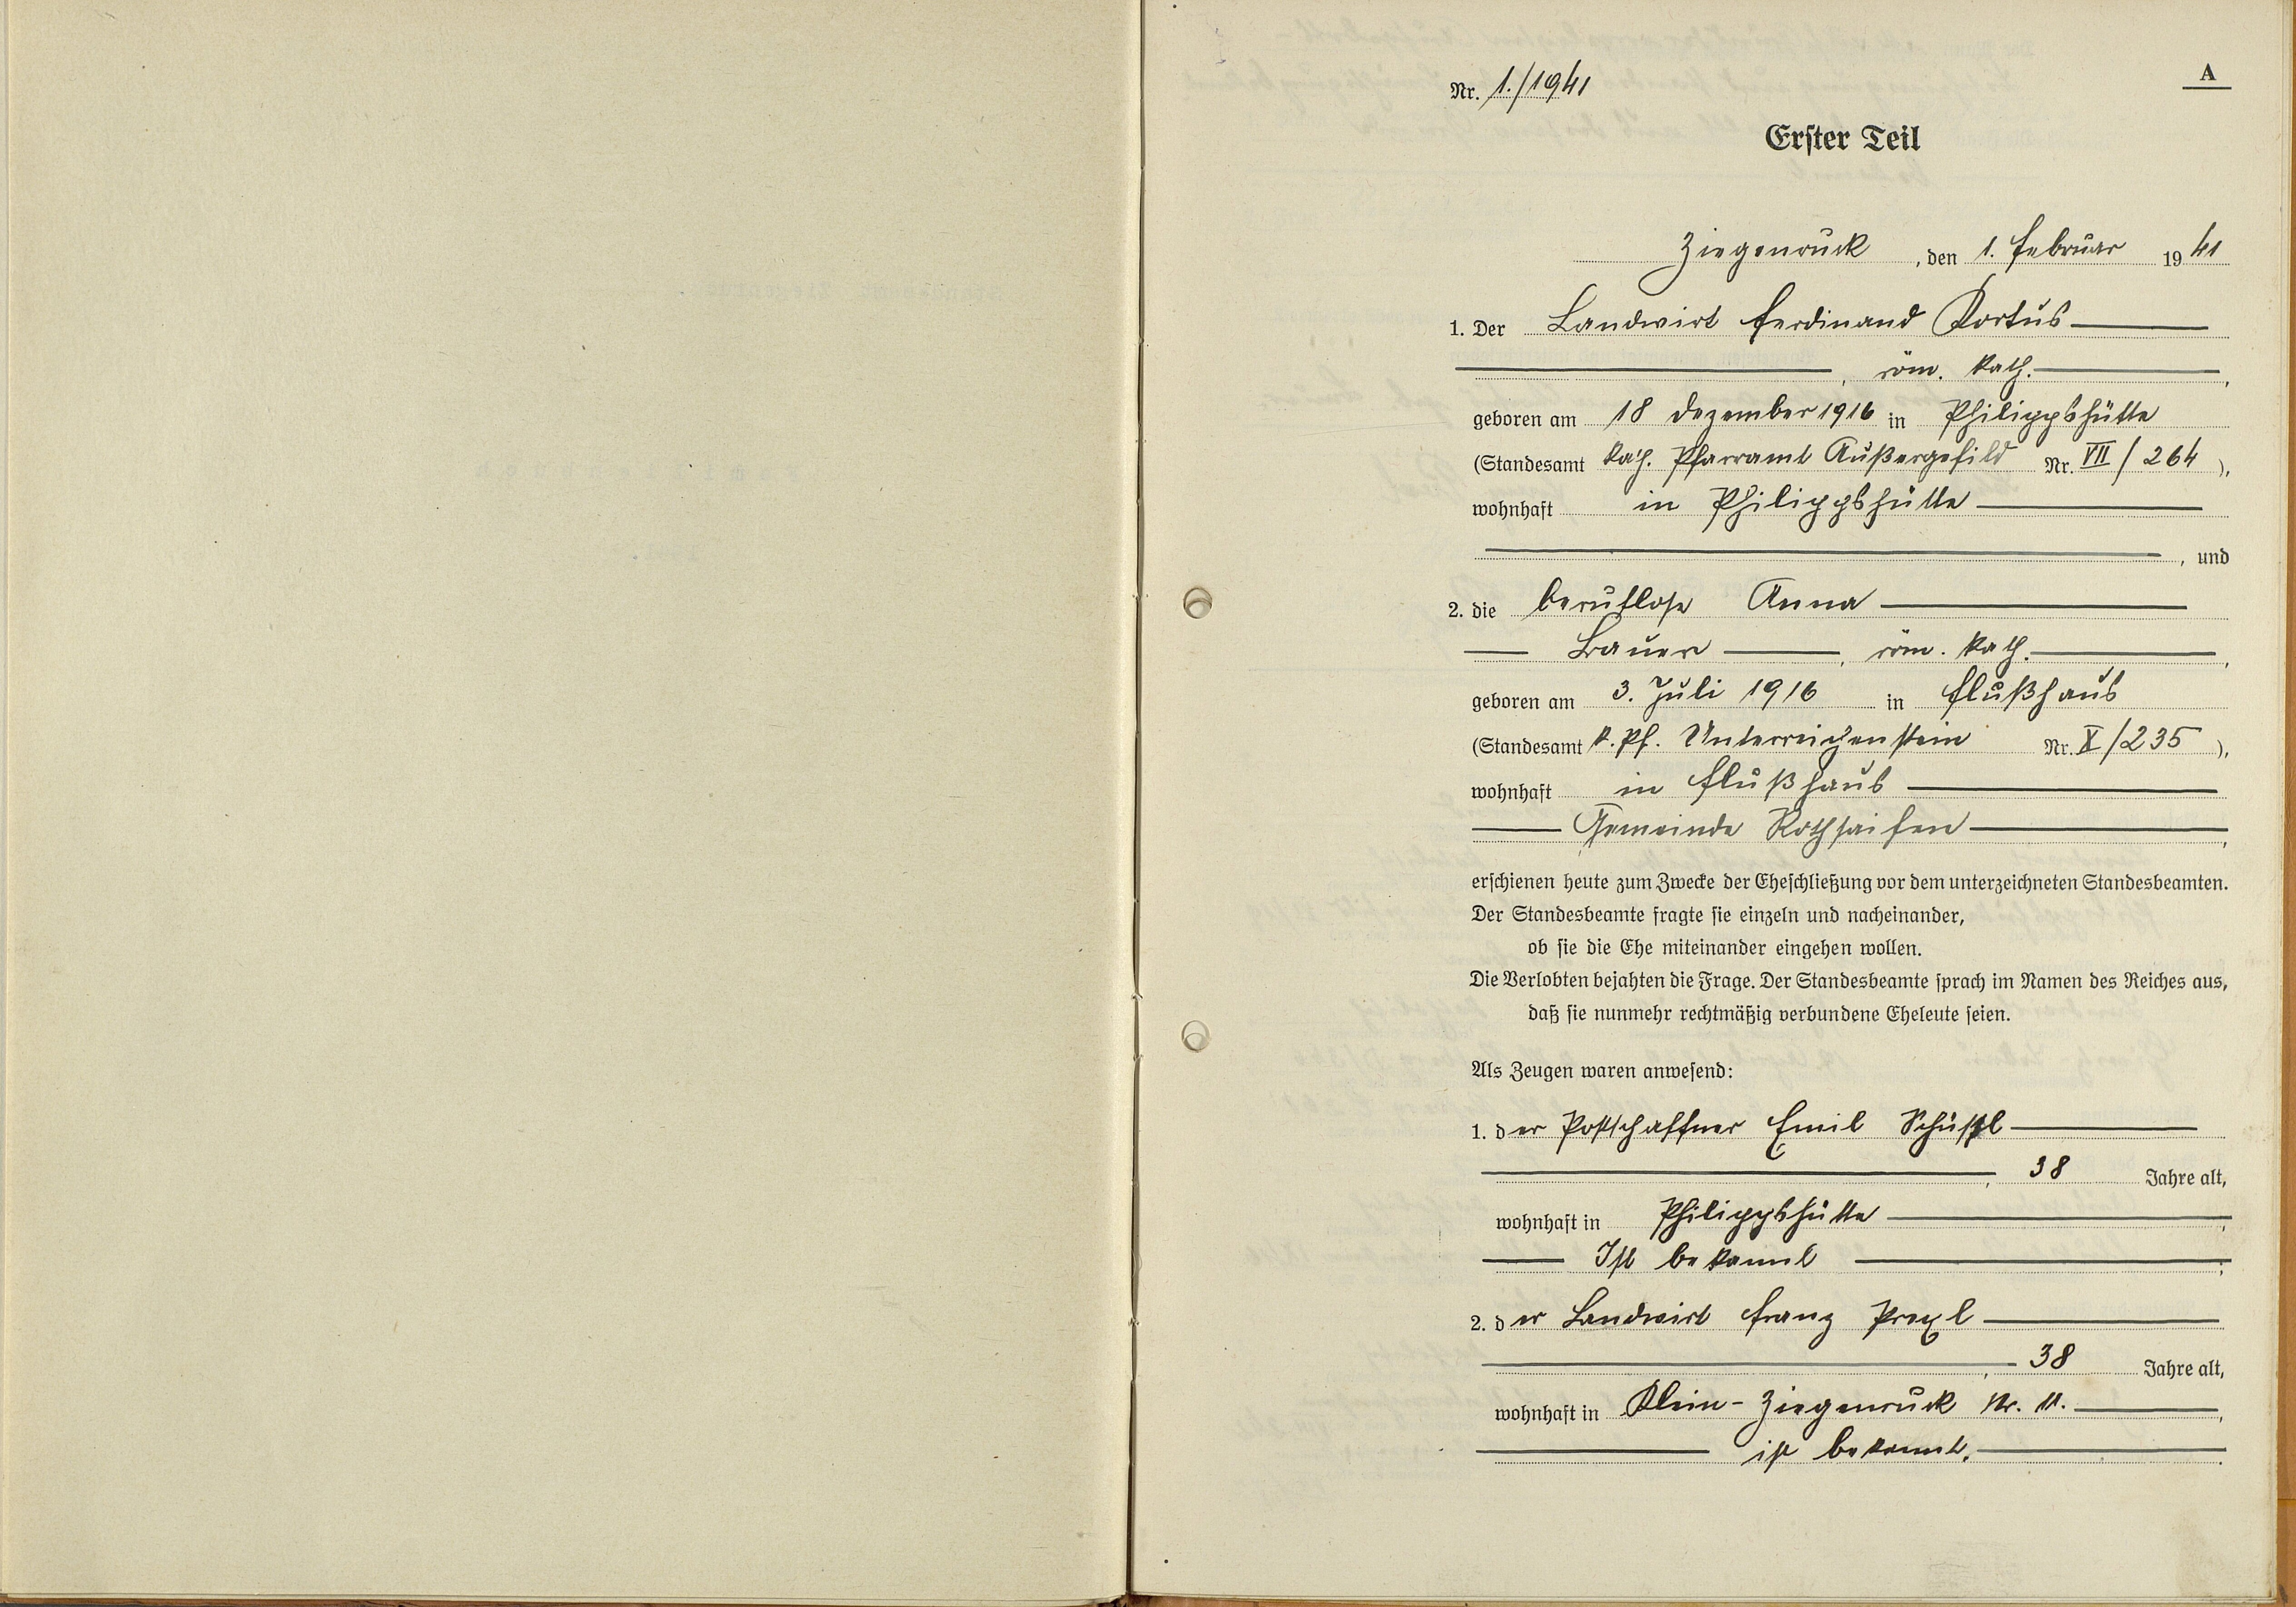 Nr. 1./1941
A
Erster Teil
Ziegenruck, den 1. Februar 1941
1. Der Landwirt Ferdinand Kortus
, röm. kath.,
geboren am 18 Dezember 1916 in Philippshütte
(Standesamt kath. Pfarramt Außergefild Nr. VII/264),
wohnhaft in Philippshütte
, und
2. die beruflose Anna
Bauer, röm. kath.,
geboren am 3. Juli 1916 in Flußhaus
(Standesamt k. Pf. Unterreichenstein Nr. X/235),
wohnhaft in Flußhaus
Gemeinde Rothsaifen,
erschienen heute zum Zwecke der Eheschließung vor dem unterzeichneten Standesbeamten.
Der Standesbeamte fragte sie einzeln und nacheinander,
ob sie die Ehe miteinander eingehen wollen.
Die Verlobten bejahten die Frage. Der Standesbeamte sprach im Namen des Reiches aus,
daß sie nunmehr rechtmäßig verbundene Eheleute seien.
Als Zeugen waren anwesend:
1. der Postschaffner Emil
, 38 Jahre alt,
wohnhaft in Philippshütte,
Ist bekannt;
2. der Landwirt Franz
, 38 Jahre alt,
wohnhaft in Klein-Ziegenruck Nr. 11.,
ist bekannt.